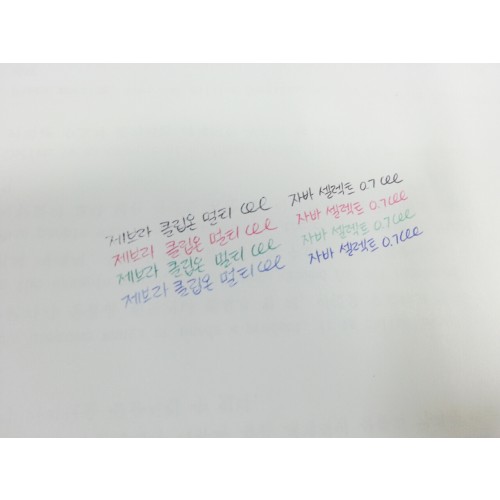 제브라 클립온 멀티 eee 자바 셀렉트 0.7 eee
제브라 클립온 멀티 eee 자바 셀렉트 0.7 eee
제브라 클립온 멀티 eee 자바 셀렉트 0.7 eee
제브라 클립온 멀티 eee 자바 셀렉트 0.7 eee